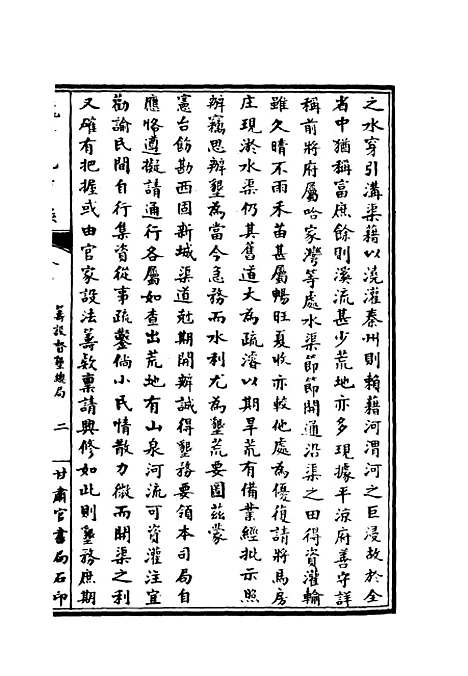 之水穿引溝渠藉以澆灌秦州則賴藉河渭河之巨浸故於全
省中猶稱富庶餘則溪流甚少荒地亦多現據平涼府善守詳
稱前將府屬哈家灣等處水渠節節開通沿渠之田得資灌輸
雖久晴不雨禾苗甚屬暢旺夏收亦較他處為優復請將馬房
庄現淤水渠仍其舊道大為疏濬以期旱荒有備業經批示照
辦竊思辦墾為當今急務而水利尤為墾荒要圖茲蒙
憲台飭勘西固新城渠道尅期開辦誠得墾務要領本司局自
應恪遵擬請通行各屬如查出荒地有山泉河流可資灌注宜
勸諭民間自行集資從事疏鑿倘小民情散力微而開渠之利
又確有把握或由官家設法籌款稟請興修如此則墾務庶期
籌設督墾總局
二
甘肅官書局石印